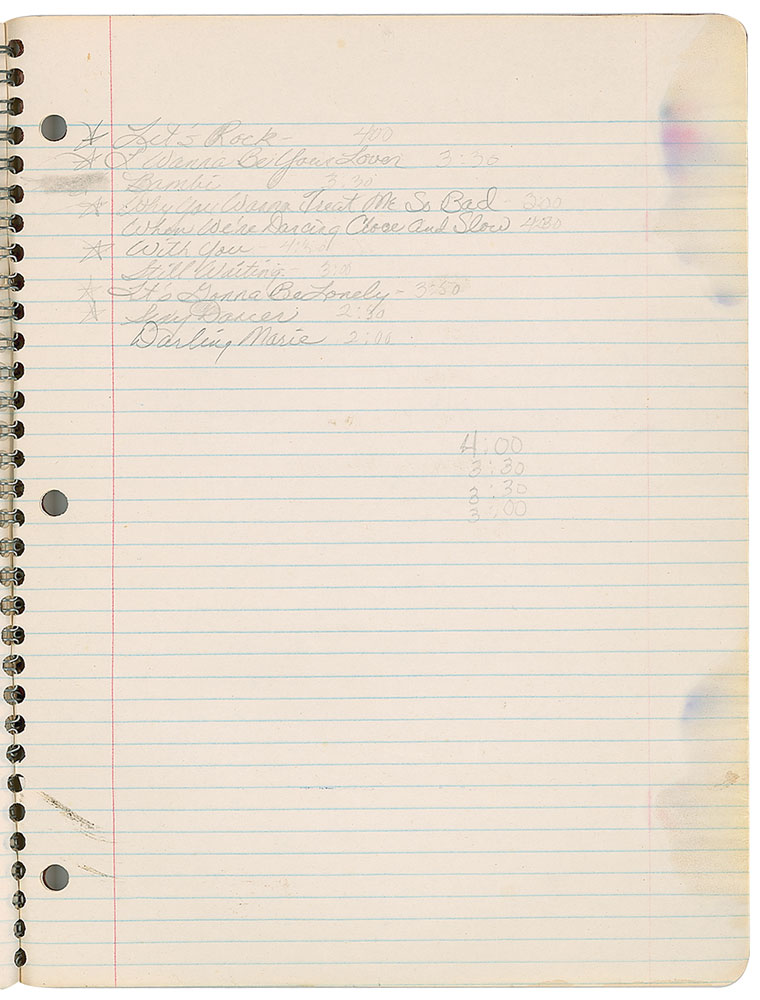 * Let's Rock - 400
* I Wanna Be Your Lover 3:30
Bambi 3:30
* Why You Wanna Treat Me So Bad - 3:00
When We're Dancing Close And Slow 4:30
* With You - 4:30
Still Waiting - 3:00
* It's Gonna Be Lonely - 3:50
* Sexy Dancer 2:30
Darling Marie 2:00
4:00
3:30
3:30
3:00